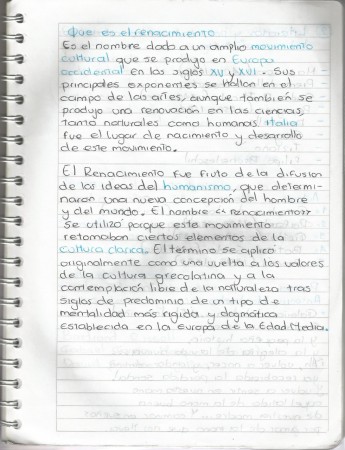 Que es el renacimiento
Es el nombre dado a un amplio movimiento
cultural que se produjo en Europa
occidental en los siglos XV y XVI. Sus
principales exponentes se hallan en el
campo de las artes, aunque también se
produjo una renovación en las ciencias,
tanto naturales como humanas Italia
fue el lugar de nacimiento y desarrollo
de este movimiento.
El Renacimiento fue fruto de la difusion
de las ideas del humanismo, que determi-
naron una nueva concepcion del hombre
y del mundo. El nombre "renacimiento"
se utilizó porque este movimiento
retomaban ciertos elementos de la
cultura clasica. El termino se aplicó
originalmente como una vuelta a los valores
de la cultura grecolatina y a la
contemplación libre de la naturaleza tras
siglos de predominio de un tipo de
mentalidad más rigida y dogmática
establecida en la Europa de la Edad Media.